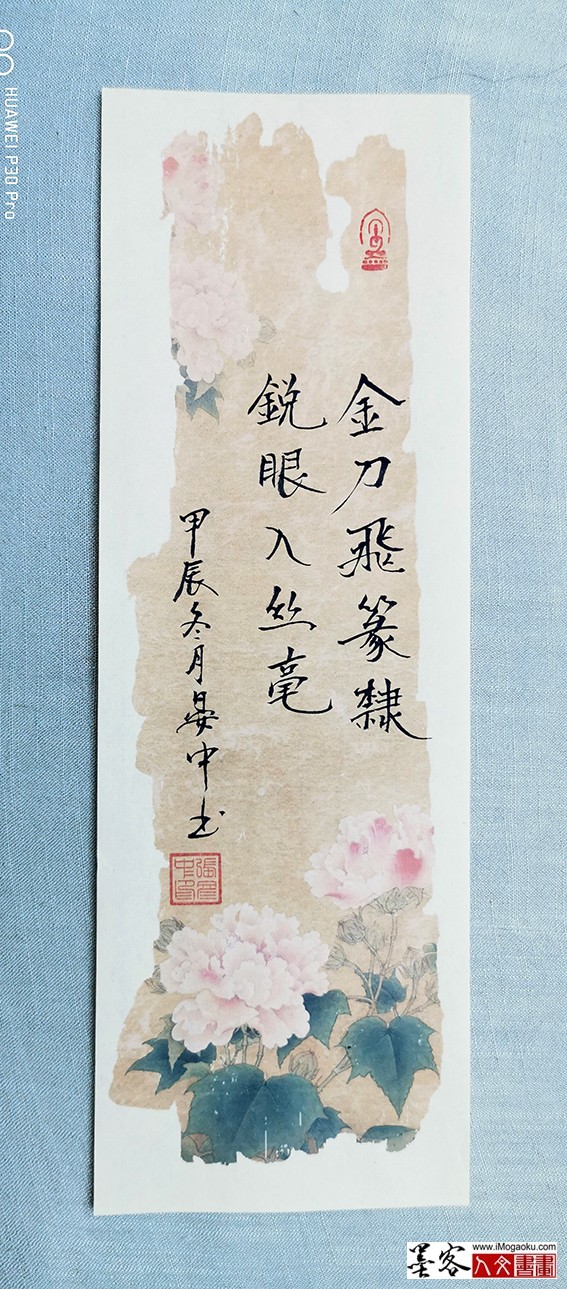 金刀飛篆隸
銳眼入丝毫
甲辰冬月晏中书
HUAWEI P30 Pro
墨客
www.iMogaoku.com
人文書畫